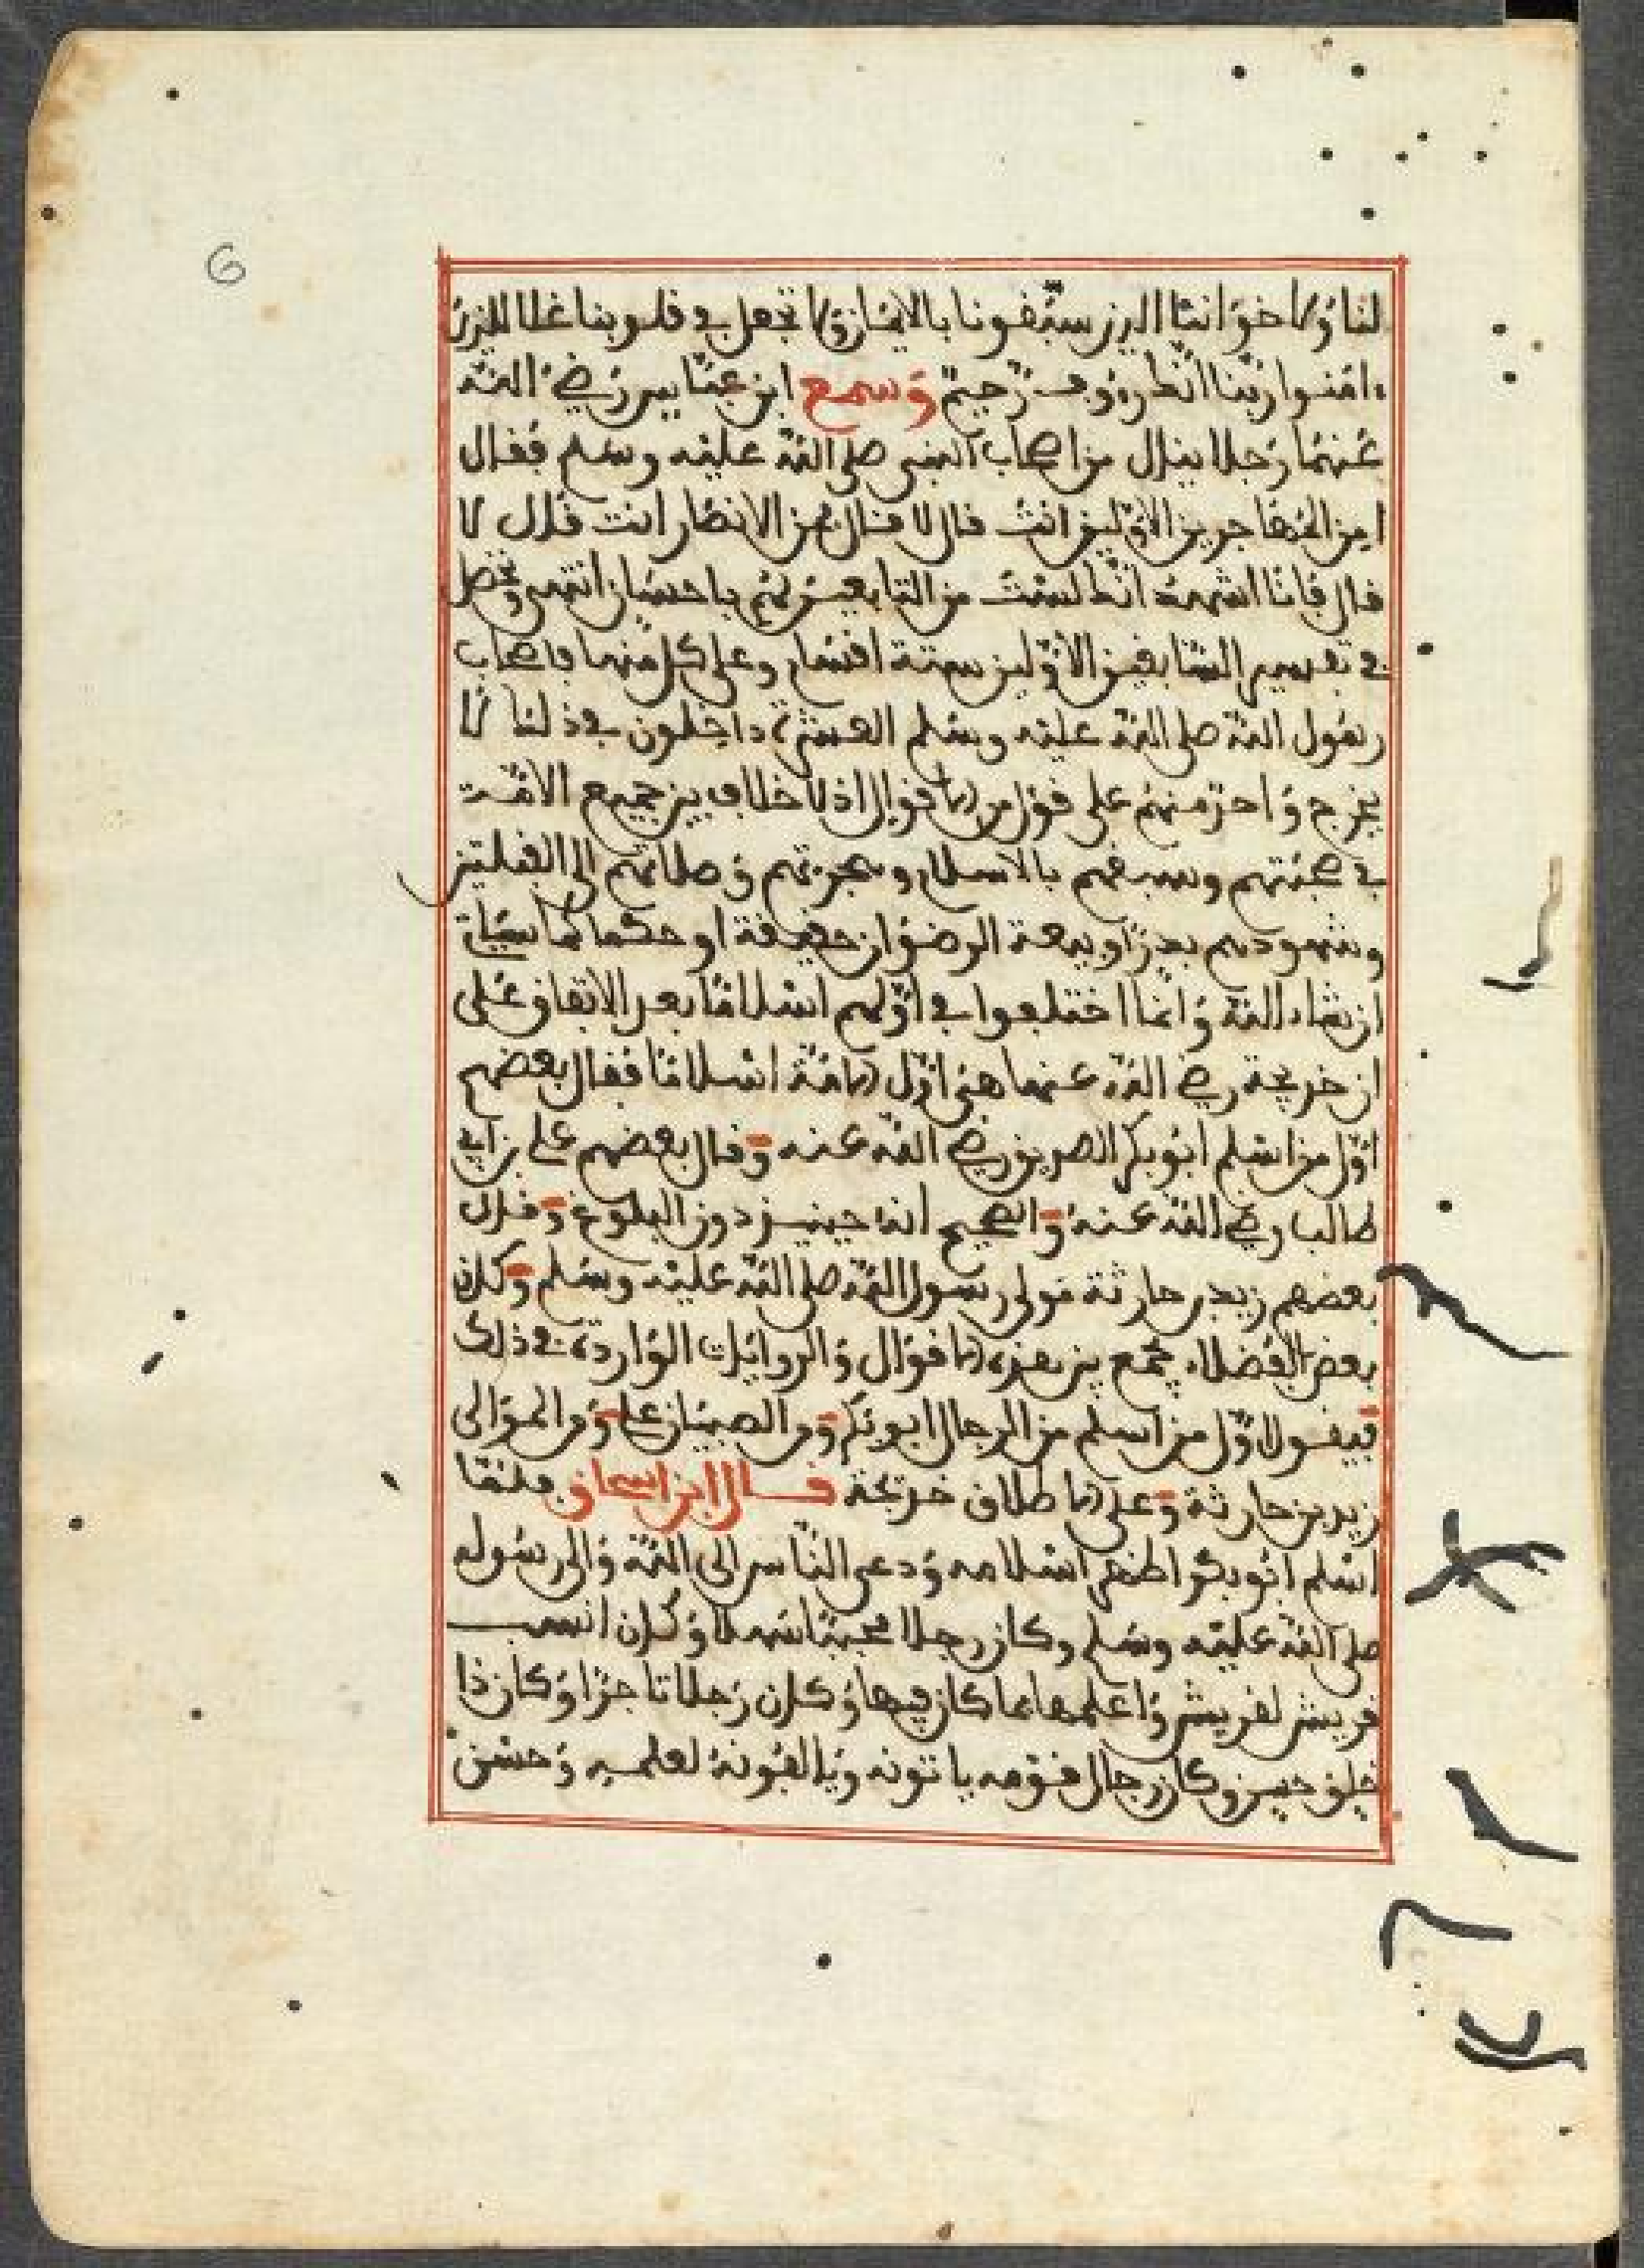 6
لنا ولاخواننا الذين سبقونا بالايمان ولا تجعل في قلوبنا غلا للذين
ءامنوا ربنا انك رءوف رحيم وسمع ابن عباس رضي الله
عنهما رجلا ينال من اصحاب النبي صلى الله عليه وسلم فقال
امن المهاجرين الاولين انت قال لا قال فمن الانصار انت قال لا
قال فانا اشهد انك لست من التابعين لهم باحسان انتهى وتحصل
في تفسير السابقين الاولين ستة اقسام وعلى كل منها فاصحاب
رسول الله صلى الله عليه وسلم العشرة داخلون في ذلك لا
يخرج واحد منهم على قول من الاقوال اذ لا خلاف بين جميع الامة
في صحبتهم وسبقهم بالاسلام وهجرتهم وصلاتهم الى القبلتين
وشهودهم بدرا وبيعة الرضوان حقيقة او حكما كما سياتي
ان شاء الله وانما اختلفوا في اولهم اسلاما بعد الاتفاق على
ان خديجة رضي الله عنها هي اول الامة اسلاما فقال بعضهم
اول من اسلم ابو بكر الصديق رضي الله عنه وقال بعضهم علي بن ابي
طالب رضي الله عنه والصحيح انه حينئذ دون البلوغ وقال
بعضهم زيد بن حارثة مولى رسول الله صلى الله عليه وسلم وكان
بعض الفضلاء يجمع بين هذه الاقوال والروايات الواردة في ذلك
فيقول اول من اسلم من الرجال ابو بكر ومن الصبيان علي ومن الموالي
زيد بن حارثة وعلى الاطلاق خديجة قال ابن اسحاق فلما
اسلم ابو بكر اظهر اسلامه ودعى الناس الى الله والى رسوله
صلى الله عليه وسلم وكان رجلا محببا سهلا وكان انسب
قريش لقريش واعلمها بما كان فيها وكان رجلا تاجرا وكان ذا
خلق حسن وكان رجال قومه ياتونه ويالفونه لعلمه وحسن